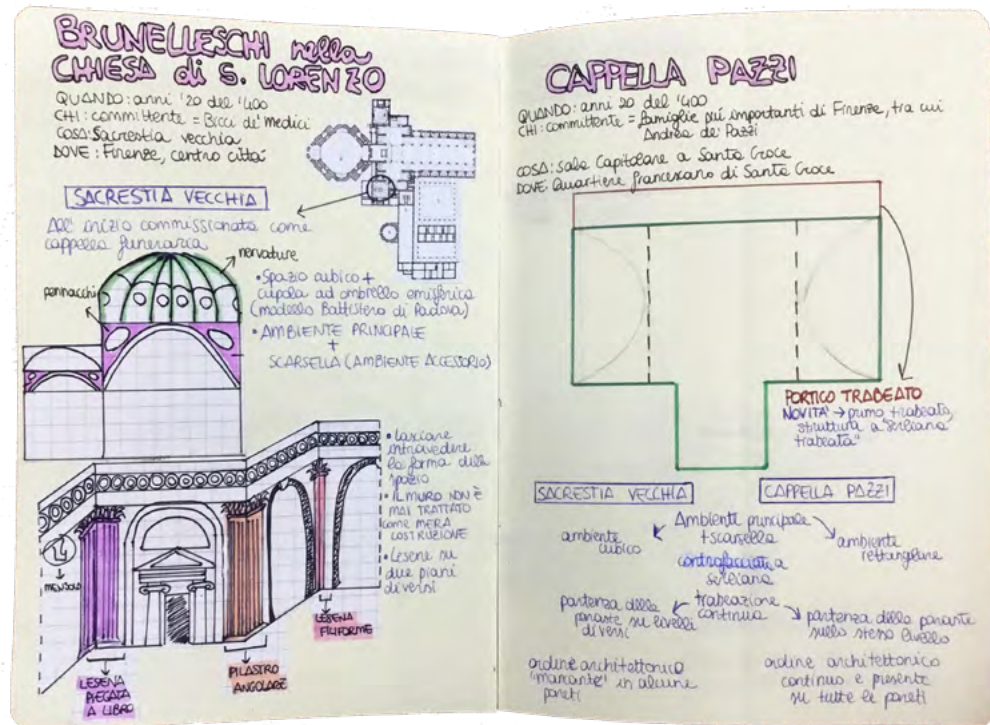 BRUNELLESCHI nella
CHIESA di S. LORENZO
QUANDO: anni '20 del '400
CHI: committente = Bicci de' Medici
COSA: Sacrestia vecchia
DOVE: Firenze, centro città
SACRESTIA VECCHIA
All' inizio commissionata come
cappella funeraria
nervature
pennacchi
• Spazio cubico +
cupola ad ombrello emisferica
(modello Battistero di Padova)
• AMBIENTE PRINCIPALE
+
SCARSELLA (AMBIENTE ACCESSORIO)
• Lasciare
intravedere
la forma dello
spazio
• IL MURO NON È
MAI TRATTATO
come MERA
COSTRUZIONE
• Lesene su
due piani
diversi
MENSOLA
LESENA
FILIFORME
PILASTRO
ANGOLARE
LESENA
PIEGATA
A LIBRO
CAPPELLA PAZZI
QUANDO: anni 20 del '400
CHI: committente = famiglie più importanti di Firenze, tra cui
Andrea de' Pazzi
COSA: sala Capitolare a Santa Croce
DOVE: Quartiere francescano di Santa Croce
PORTICO TRABEATO
NOVITA' → primo trabeato,
struttura a "serliana
trabeata"
SACRESTIA VECCHIA
CAPPELLA PAZZI
Ambiente principale
+ scarsella
ambiente
cubico
ambiente
rettangolare
controfacciata a
serliana
trabeazione
continua
partenza delle
paraste su livelli
diversi
partenza delle paraste
sullo stesso livello
ordine architettonico
"marcante" in alcune
pareti
ordine architettonico
continuo e presente
su tutte le pareti